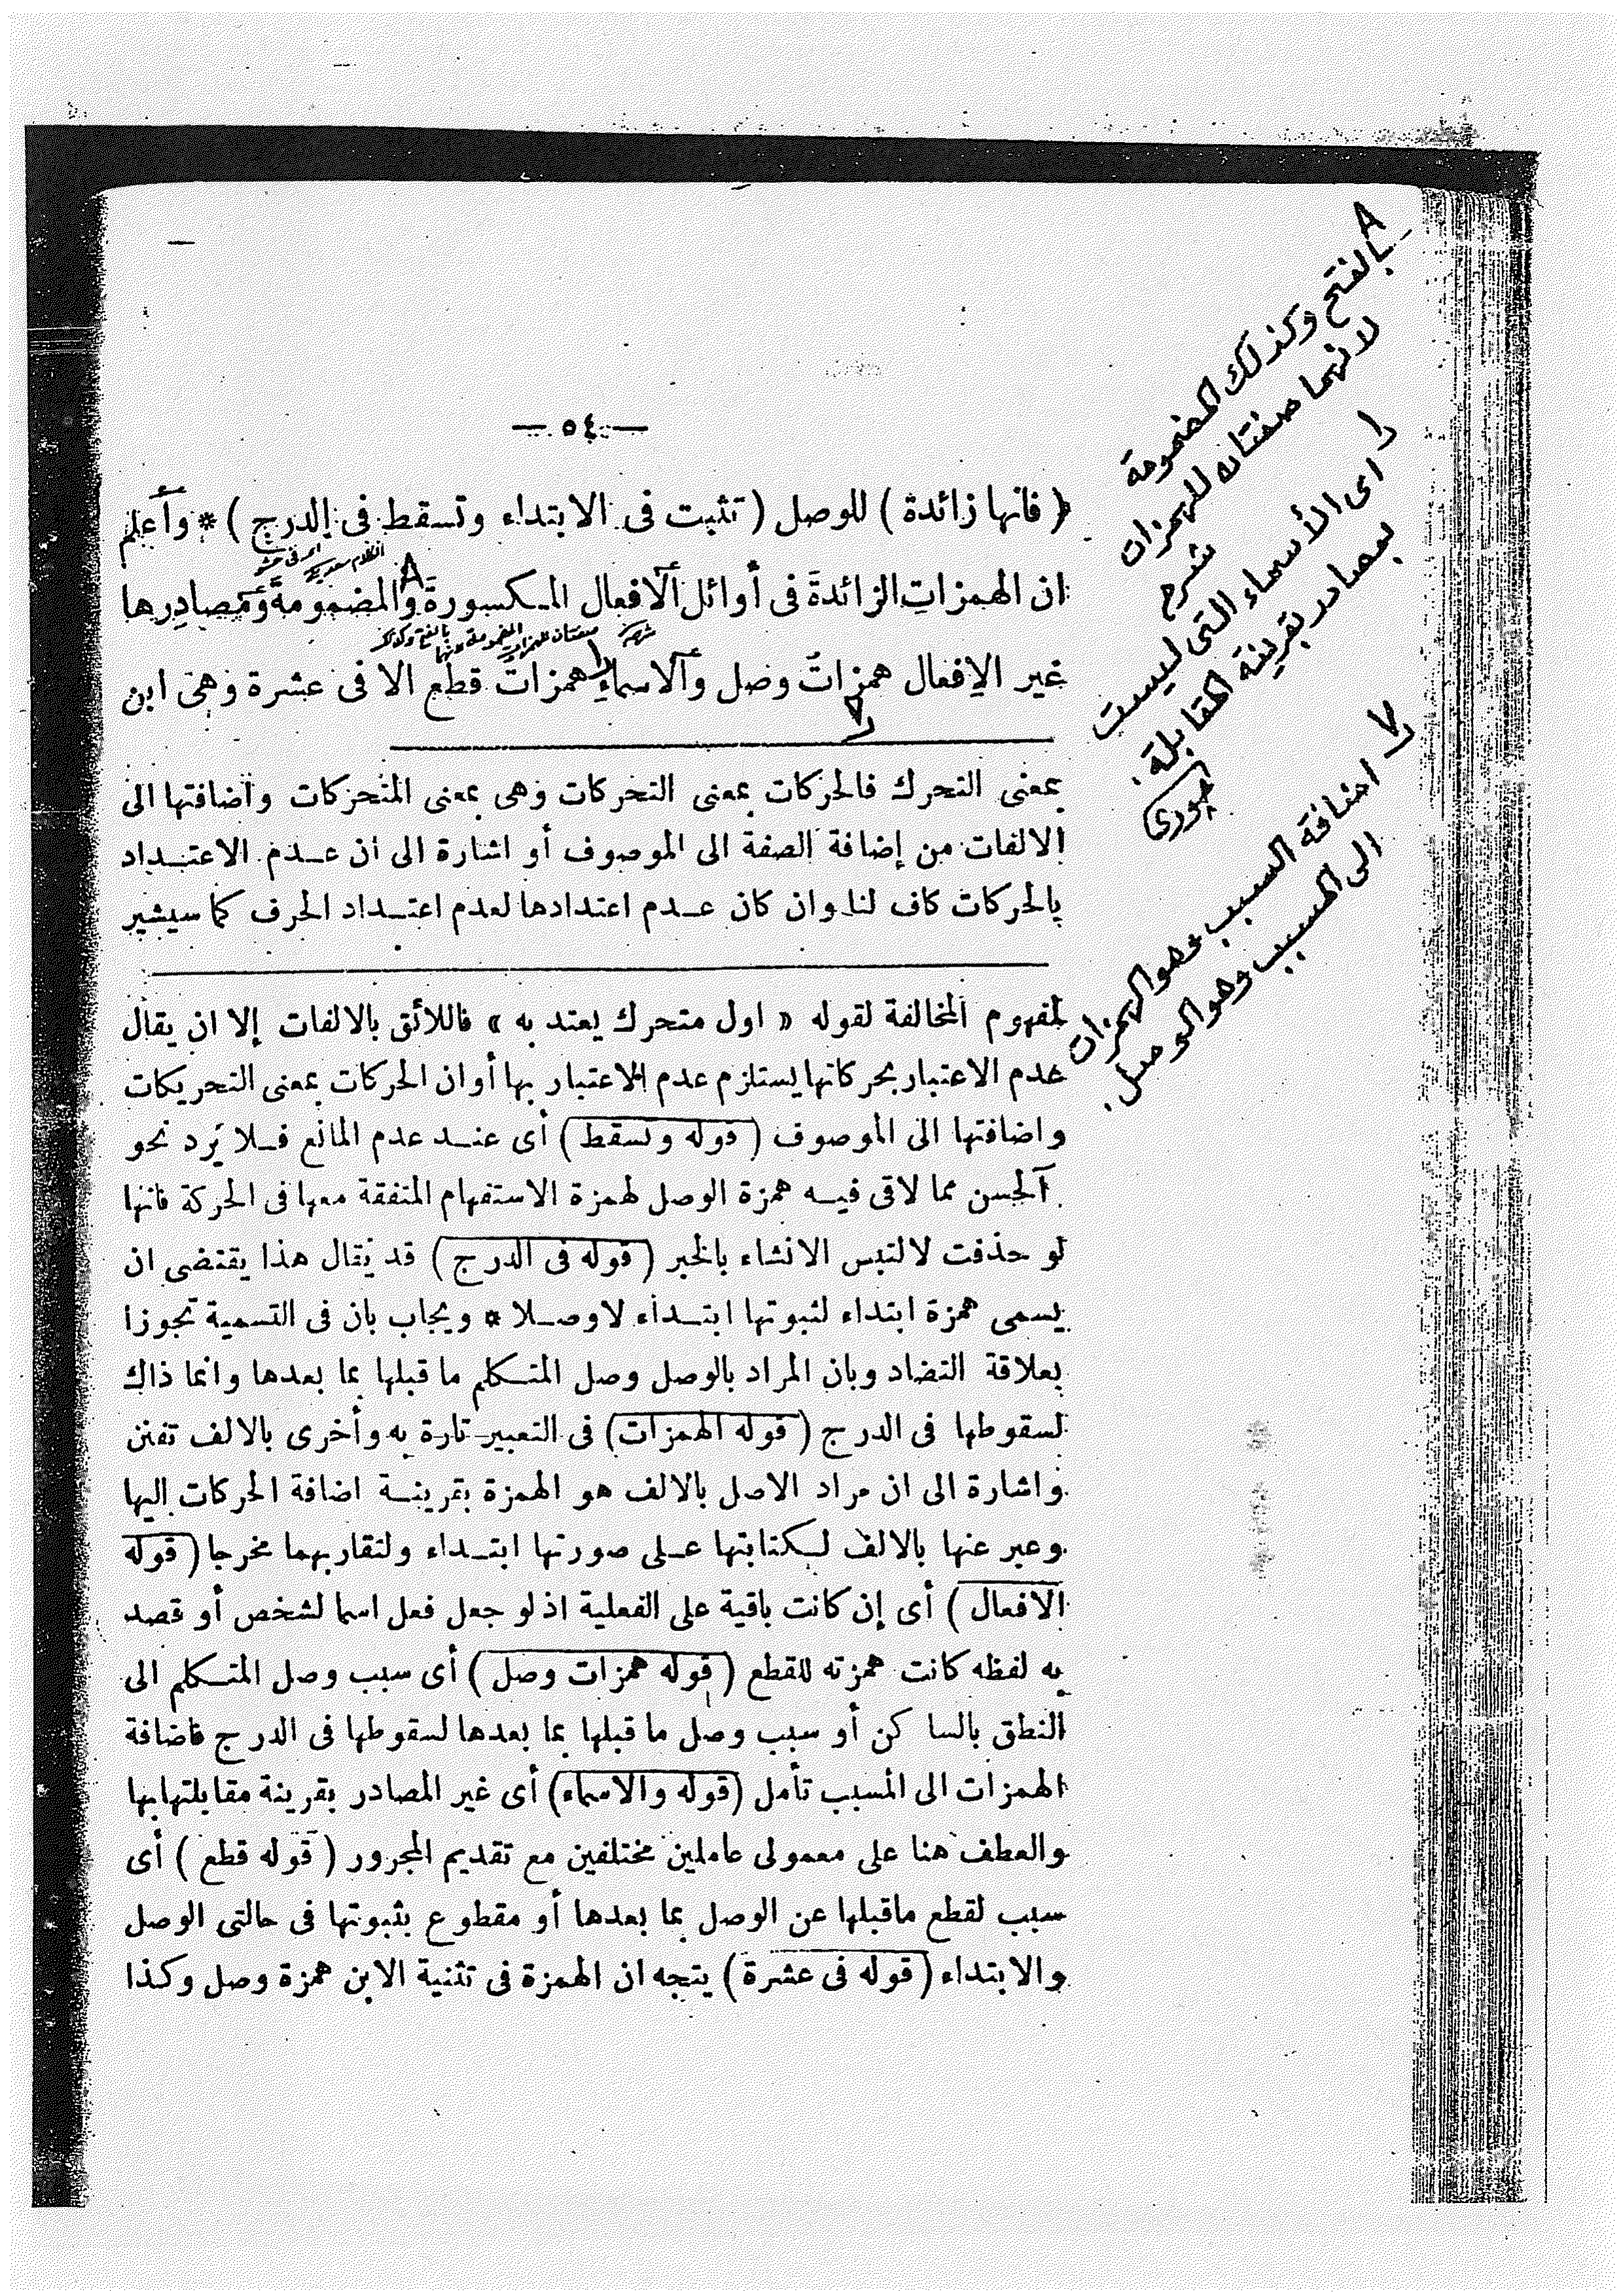 — ٥٤ —
( فانها زائدة ) للوصل ( تثبت فى الابتداء وتسقط فى الدرج ) * وأعلم
ان الهمزاتِ الزائدةَ فى أوائل الافعال المكسورةَ والمضمومةَ ومصادِرها
غير الافعال همزاتُ وصل والاسماءِ همزاتُ قطع الا فى عشرة وهى ابن
بمعنى التحرك فالحركات بمعنى التحركات وهى بمعنى المتحركات واضافتها الى
الالفات من إضافة الصفة الى الموصوف أو اشارة الى ان عدم الاعتداد
بالحركات كاف لنا وان كان عدم اعتدادها لعدم اعتداد الحرف كما سيشير
لمفهوم المخالفة لقوله « اول متحرك يعتد به » فاللائق بالالفات إلا ان يقال
عدم الاعتبار بحركاتها يستلزم عدم الاعتبار بها أو ان الحركات بمعنى التحريكات
واضافتها الى الموصوف ( قوله وتسقط ) أى عند عدم المانع فلا يَرد نحو
آلحسن مما لاقى فيه همزة الوصل لهمزة الاستفهام المتفقة معها فى الحركة فانها
لو حذفت لالتبس الانشاء بالخبر ( قوله فى الدرج ) قد يقال هذا يقتضى ان
يسمى همزة ابتداء لثبوتها ابتداء لا وصلا * ويجاب بان فى التسمية تجوزا
بعلاقة التضاد وبان المراد بالوصل وصل المتكلم ما قبلها بما بعدها وانما ذاك
لسقوطها فى الدرج ( قوله الهمزات ) فى التعبير تارة به وأخرى بالالف تفنن
واشارة الى ان مراد الاصل بالالف هو الهمزة بقرينة اضافة الحركات اليها
وعبر عنها بالالف لكتابتها على صورتها ابتداء ولتقاربهما مخرجا ( قوله
الافعال ) أى إن كانت باقية على الفعلية اذ لو جعل فعل اسما لشخص أو قصد
به لفظه كانت همزته للقطع ( قوله همزات وصل ) أى سبب وصل المتكلم الى
النطق بالساكن أو سبب وصل ما قبلها بما بعدها لسقوطها فى الدرج فاضافة
الهمزات الى المسبب تأمل ( قوله والاسماء ) أى غير المصادر بقرينة مقابلتها بها
والعطف هنا على معمولى عاملين مختلفين مع تقديم المجرور ( قوله قطع ) أى
سبب لقطع ماقبلها عن الوصل بما بعدها أو مقطوع بثبوتها فى حالتى الوصل
والابتداء ( قوله فى عشرة ) يتجه ان الهمزة فى تثنية الابن همزة وصل وكذا
A
بالفتح وكذلك المضمومة
لانهما صفتان للهمزات
شرح
اى الأسماء التى ليست
بمصادر بقرينة المقابلة.
اضافة السبب وهو الهمزات
الى المسبب وهو الوصل.